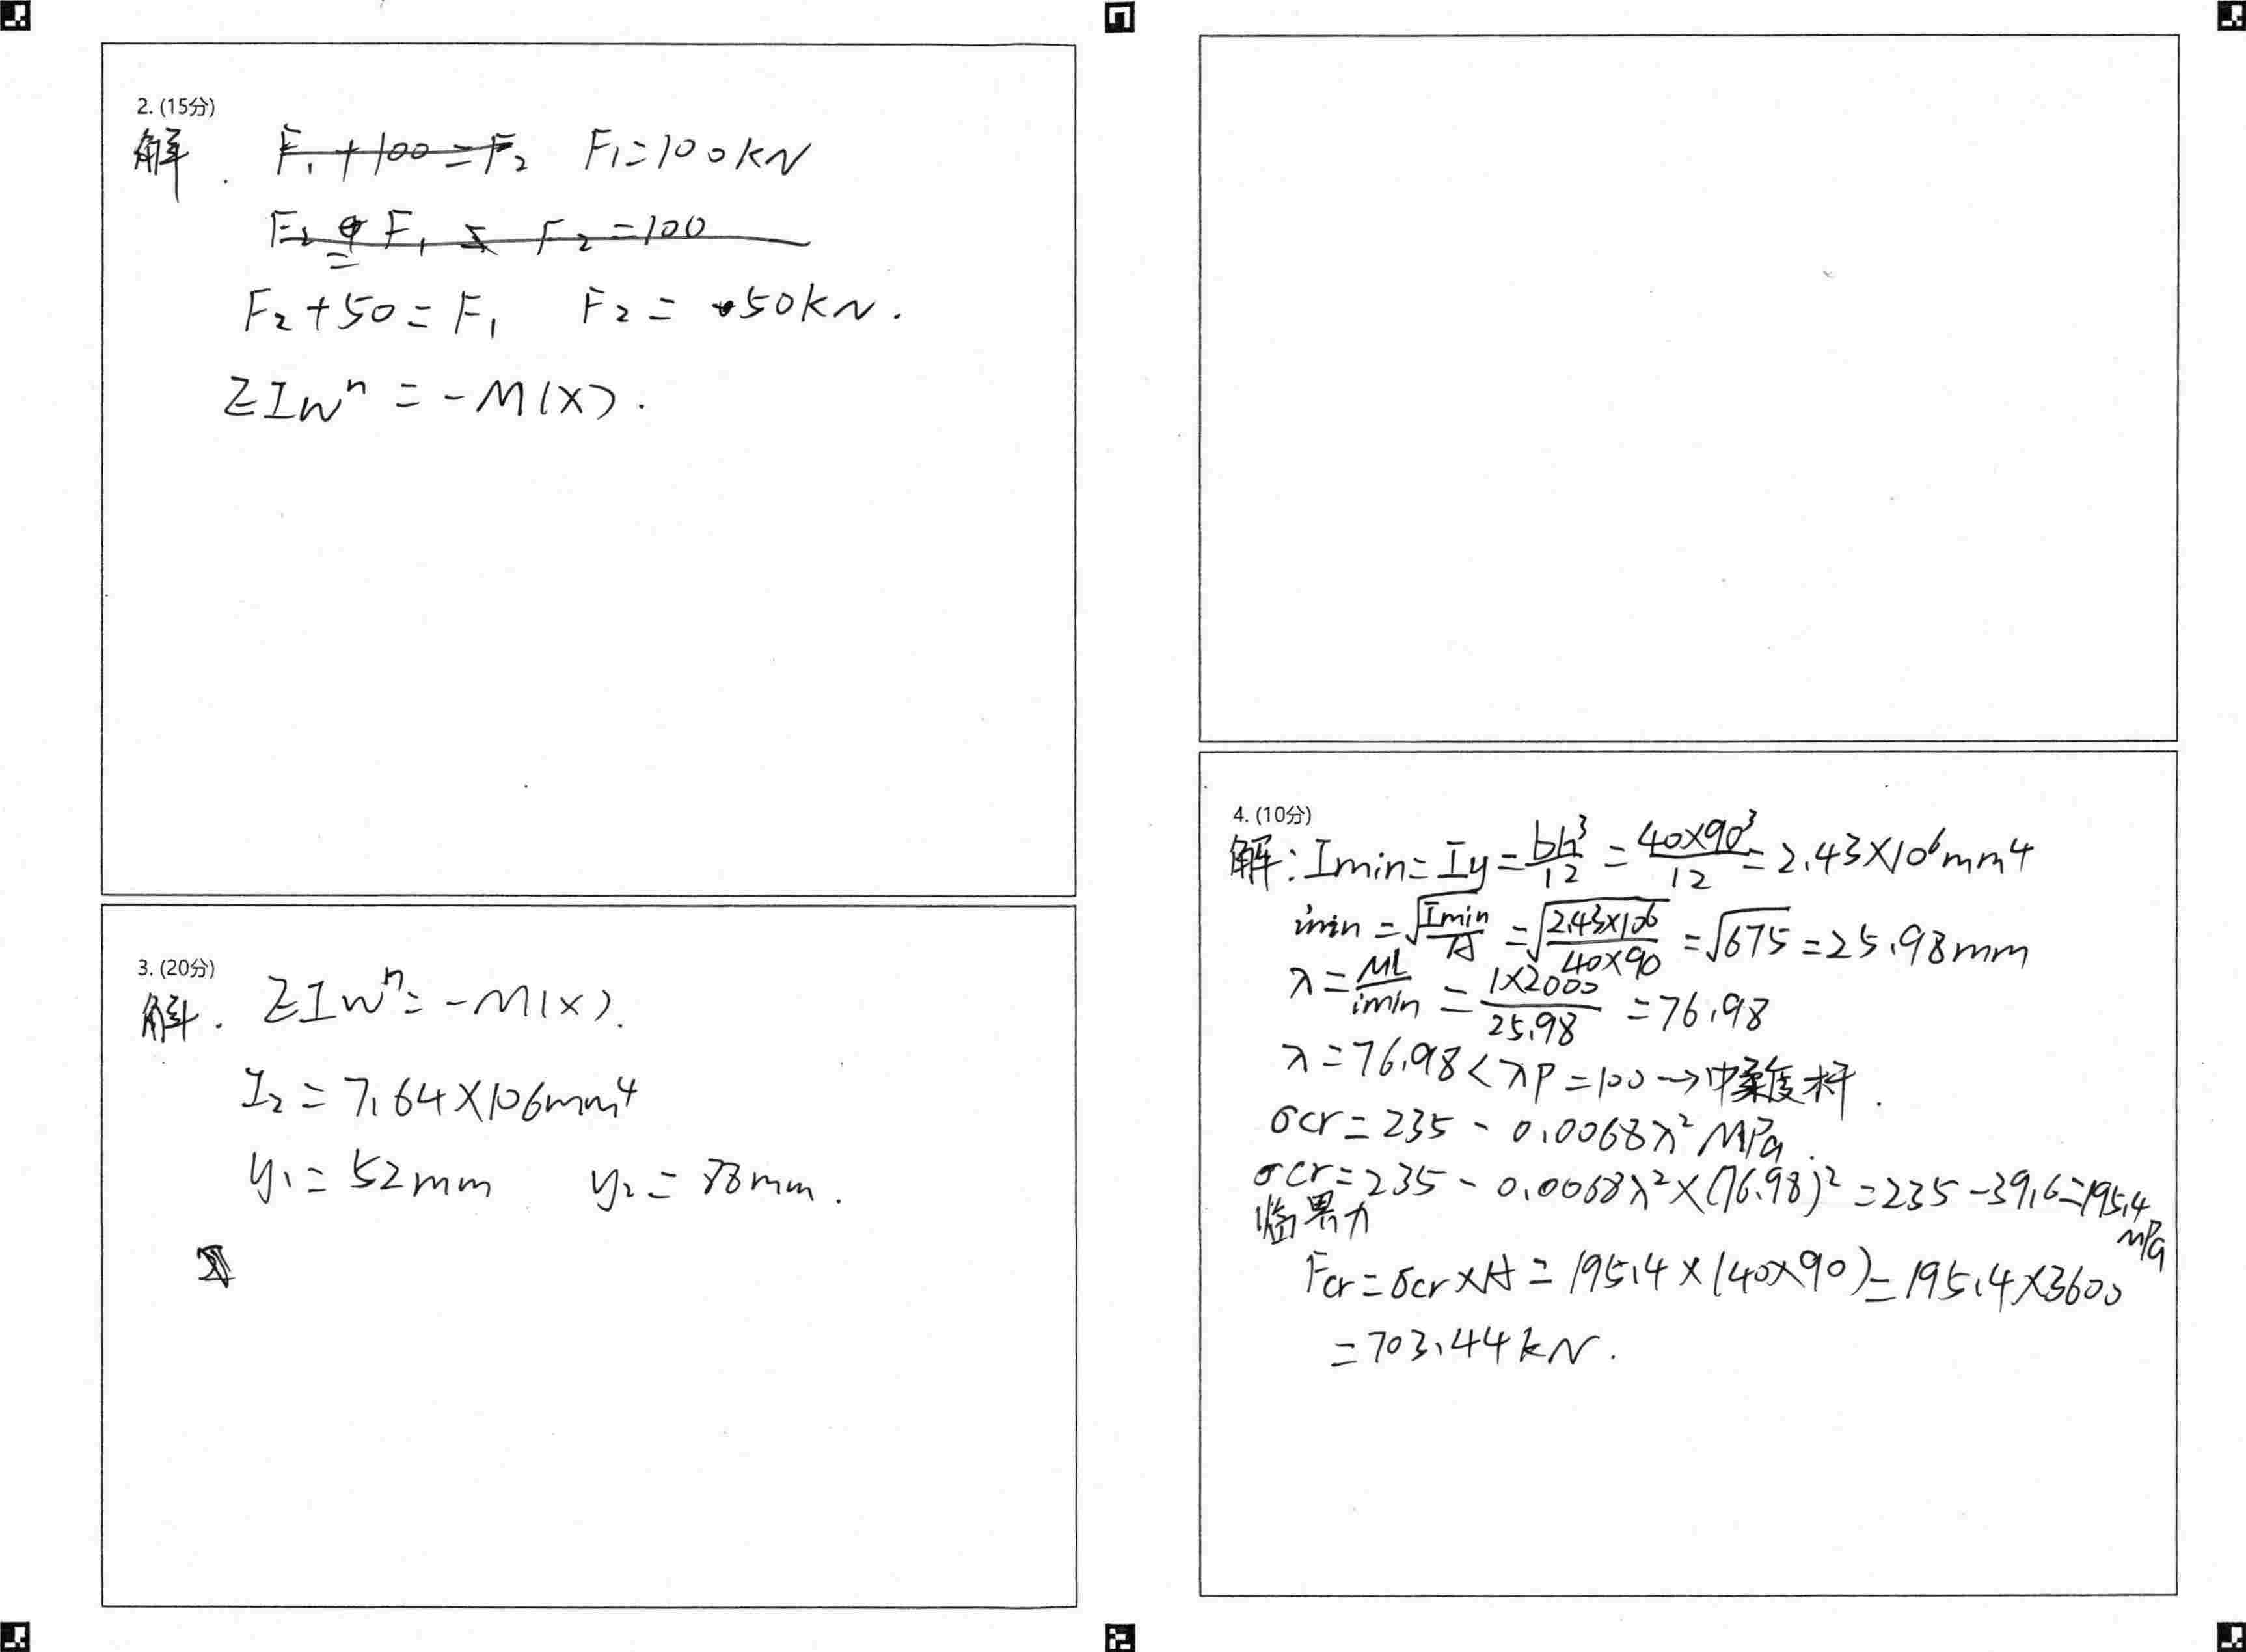 2. (15分)
解. F₁+100=F₂ F₁=100kN
F₂=F₁ F₂=100
F₂+50=F₁ F₂=50kN.
EIwⁿ=-M(x).
3. (20分)
解. EIwⁿ=-M(x).
I₂=7.64×106mm⁴
y₁=52mm y₂=88mm.
4. (10分)
解: Imin=Iy=bh³/12=40×90³/12=2.43×10⁶mm4
imin=√(Imin/A)=√(2.43×10⁶/40×90)=√675=25.98mm
λ=μL/imin=1×2000/25.98=76.98
λ=76.98<λP=100→中柔度杆.
σcr=235-0.0068λ²MPa.
σcr=235-0.0068λ²×(76.98)²=235-39.6=195.4MPa
临界力
Fcr=σcr×A=195.4×(40×90)=195.4×3600
=703.44kN.